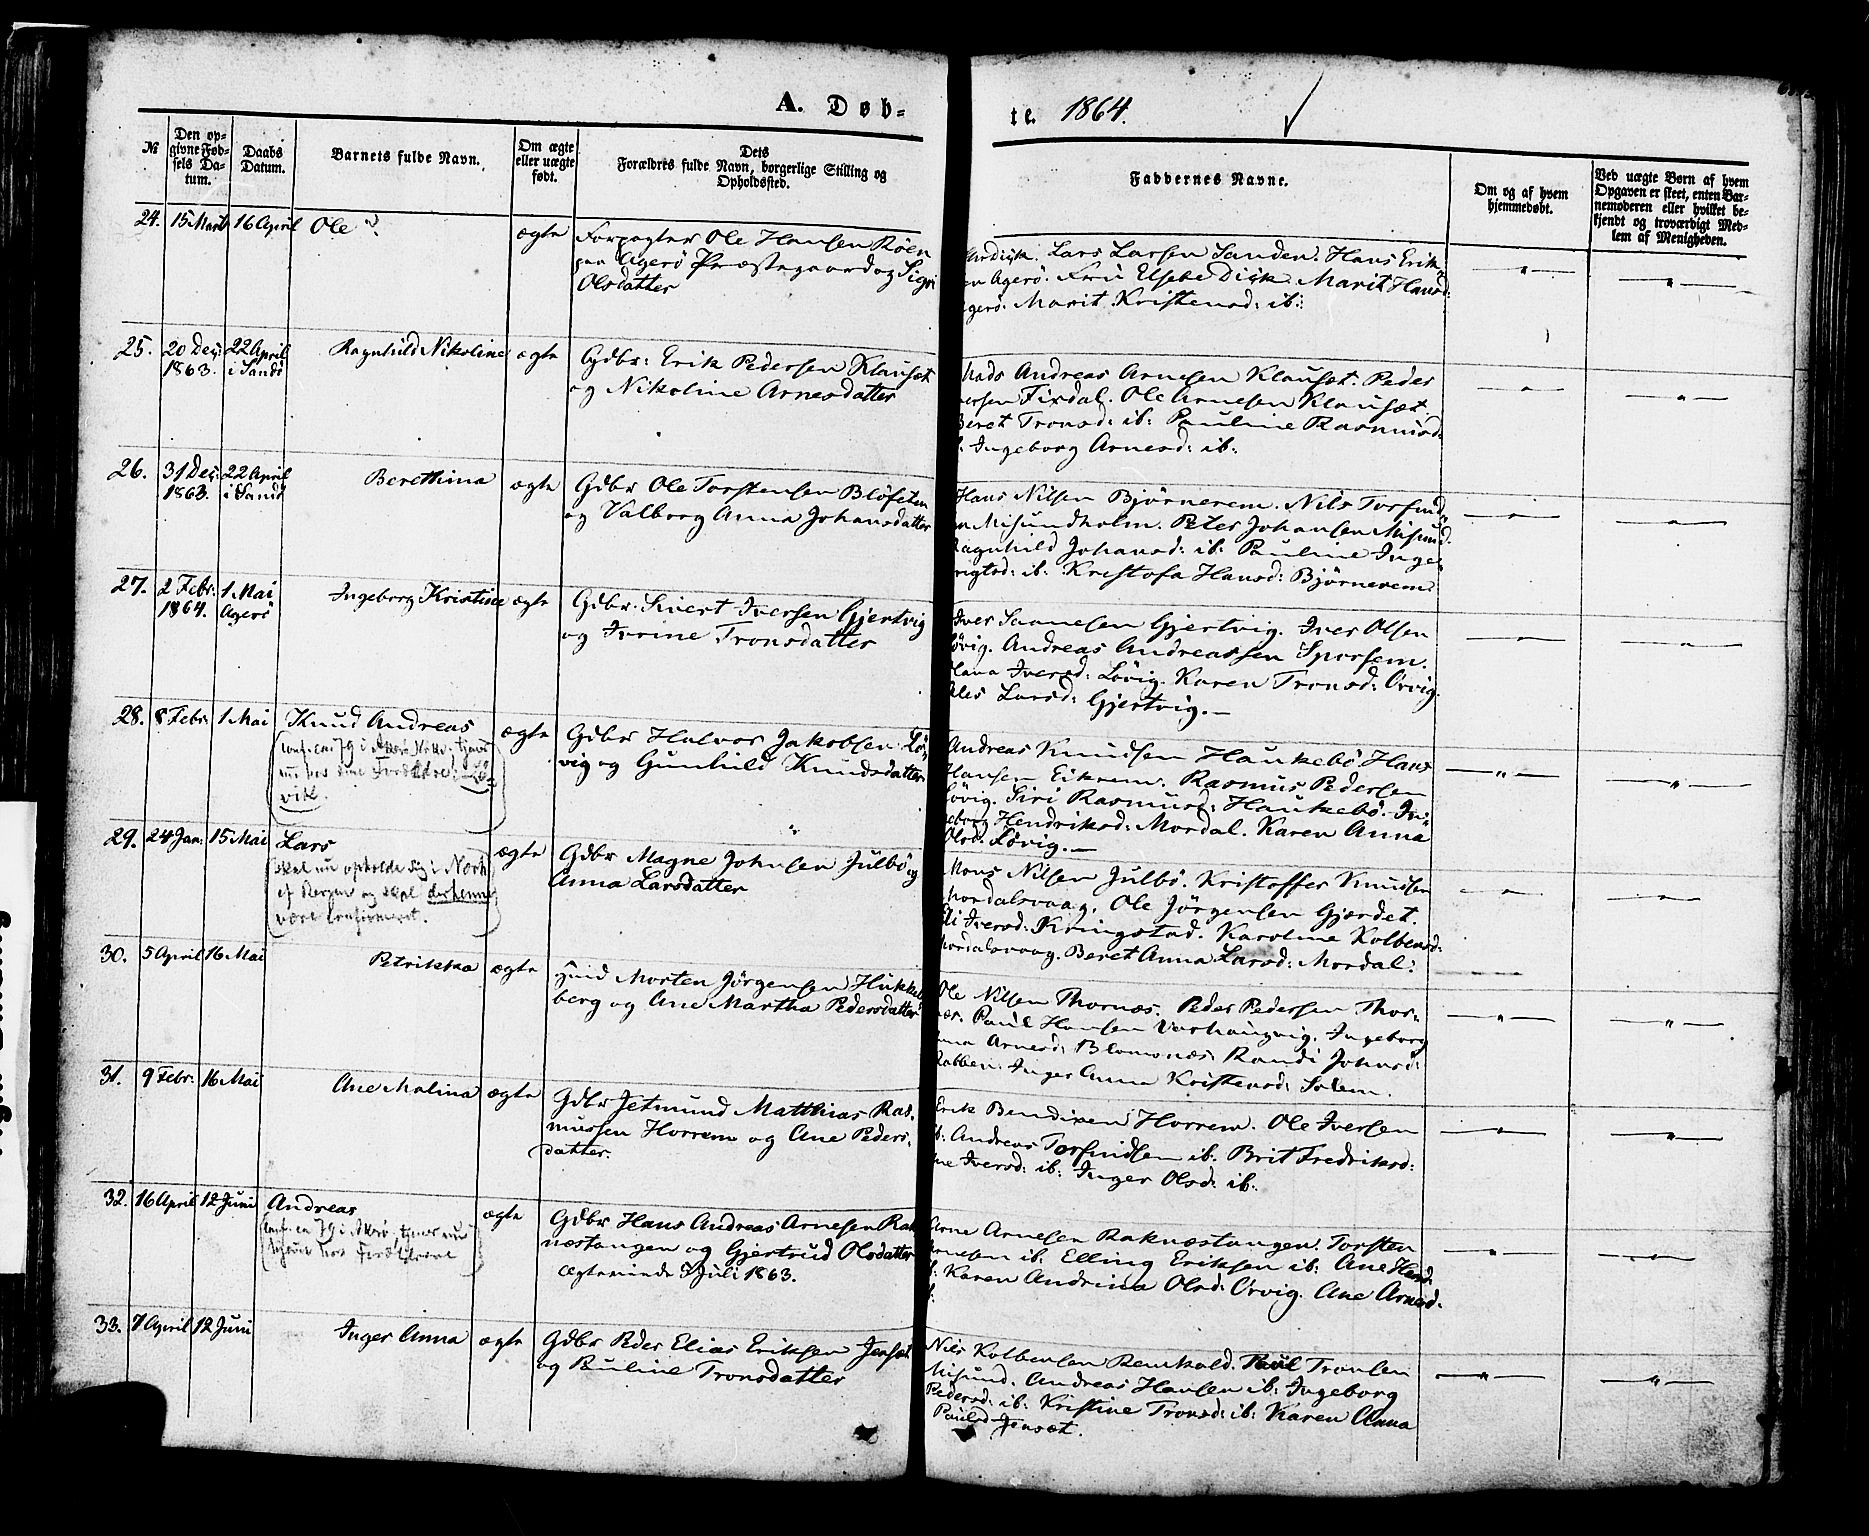 A. Døb-
te. 1864.
№
Den op-
givne Fød-
sels Da-
tum.
Daabs
Datum.
Barnets fulde Navn.
Om ægte
eller uægte
født.
Dets
Forældres fulde Navn, borgerlige Stilling og
Opholdssted.
Faddernes Navne.
Om og af hvem
hjemmedøbt.
Ved uægte Børn af hvem
Opgaven er skeet, enten Bar-
nemoderen eller hvilket be-
kjendt og troværdigt Med-
lem af Menigheden.
24. 15 Marts 16 April Ole ægte
Forpagter Ole Hansen Röen
paa Agerö Præstegaard og Sigri
Olsdatter
Lars Larsen Sanden. Hans Erik-
en Agerö. Fru Elsebe Dick. Marit Hansd:
gerö. Marit Kristensd: ib:
25. 20 Dec: 22 April Ragnhild Nikoline ægte
1863. i Sandö
Gdbr: Erik Pedersen Klauset
og Nikoline Arnesdatter
Mads Andreas Arnesen Klauset. Peder
ersen Fixdal. Ole Arnesen Klausæt.
Beret Tronsd: ib: Pauline Rasmusd:
Ingeborg Arnesd: ib:
26. 31 Dec: 22 April Berethina ægte
1863. i Sandö
Gdbr Ole Torstensen Blöseten
og Valborg Anna Johansdatter
Hans Nilsen Björnerem. Nils Torfind-
en Misundholm. Peter Johansen Misund.
Ragnhild Johansd: ib: Pauline Inge-
rigtsd: ib: Krestofa Hansd: Björnerem
27. 2 Febr: 1 Mai Ingeborg Kristine ægte
1864. Agerö
Gdbr. Sivert Iversen Gjertvig
og Ivrine Tronsdatter
Iver Sannesen Gjertvig. Iver Olsen
övig. Andreas Andreassen Sporsem.
Olava Iversd: Lövig. Karen Tronsd: Orvig
Ales Larsd: Gjertvig.—
28. 8 Febr: 1 Mai Knud Andreas ægte
vik.
Gdbr Halvor Jakobsen Lö-
vig og Gunhild Knudsdatter
Andreas Knudsen Haukebö Hans
Hansen Eikrem. Rasmus Pedersen
Lövig. Siri Rasmusd: Haukebö. In-
geborg Hendriksd: Mordal. Karen Anna
Olsd: Lövig.—
29. 24 Jan: 15 Mai Lars ægte
skal nu opholde sig i Nork
af Bergen og skal derhenne
være konfirmeret.
Gdbr Magne Johnsen Julbö og
Anna Larsdatter
Mons Nilsen Julbö. Kristoffer Knudsen
Mordalsvaag. Ole Jörgensen Gjærdet.
Eli Iversd: Kringstad. Karoline Kolbensd:
Mordalsvaag. Beret Anna Larsd: Mordal:
30. 5 April 16 Mai Petrikka ægte
Morten Jörgensen Hukkel-
berg og Ane Martha Pedersdatter
Ole Nilsen Thornæs. Peder Pedersen Thor-
næs. Paul Hansen Varhaugvig. Ingeborg
Anna Arnesd: Blomsnæs. Randi Johnsd:
Rabben: Inger Anna Kristensd: Solem.
31. 9 Febr: 16 Mai Ane Malina ægte
Gdbr Jetmund Matthias Ras-
mussen Horrem og Ane Peders-
datter.
Erik Bendixen Horrem. Ole Iversen
ib. Andreas Torfindsen ib: Brit Fredriksd:
Ane Iversd: ib: Inger Olsd: ib:
32. 16 April 12 Juni Andreas ægte
Gdbr Hans Andreas Arnesen Rak-
næstangen og Gjertrud Olsdatter
Ægteviede 5 Juli 1863.
Arne Arnesen Raknæstangen. Torsten
Arnesen ib. Elling Eriksen ib: Ane Hansd:
Karen Andrina Olsd: Orvig. Ane Arnesd.
33. 7 April 12 Juni Inger Anna ægte
Gdbr Peder Elias Eriksen Jensæt
og Pauline Tronsdatter
Nils Kolbensen Remhold. Paul Tronsen
Misund. Andreas Hansen ib: Ingeborg
Pedersd: ib: Kristine Tronsd: ib: Karen Anna
Paulsd Jensæt.